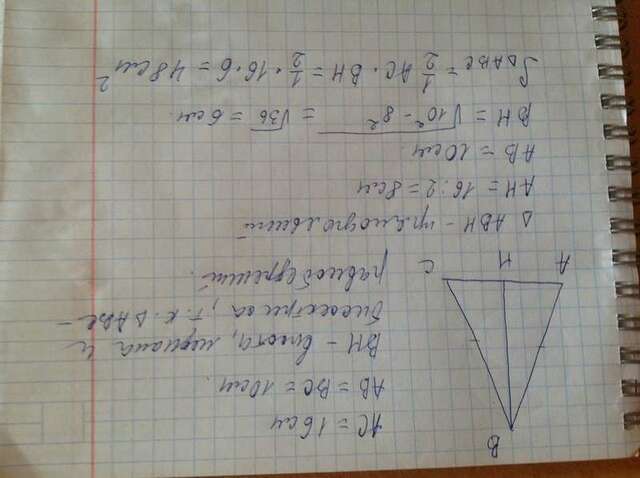 B
A H C
AC = 16 см
AB = BC = 10 см.
BH - высота, медиана и
биссектриса, т.к. ΔABC -
равнобедренный.
Δ ABH - прямоугольный
AH = 16 : 2 = 8 см
AB = 10 см.
BH = √10² - 8² = √36 = 6 см.
SΔABC = 1/2 AC · BH = 1/2 · 16 · 6 = 48 см²